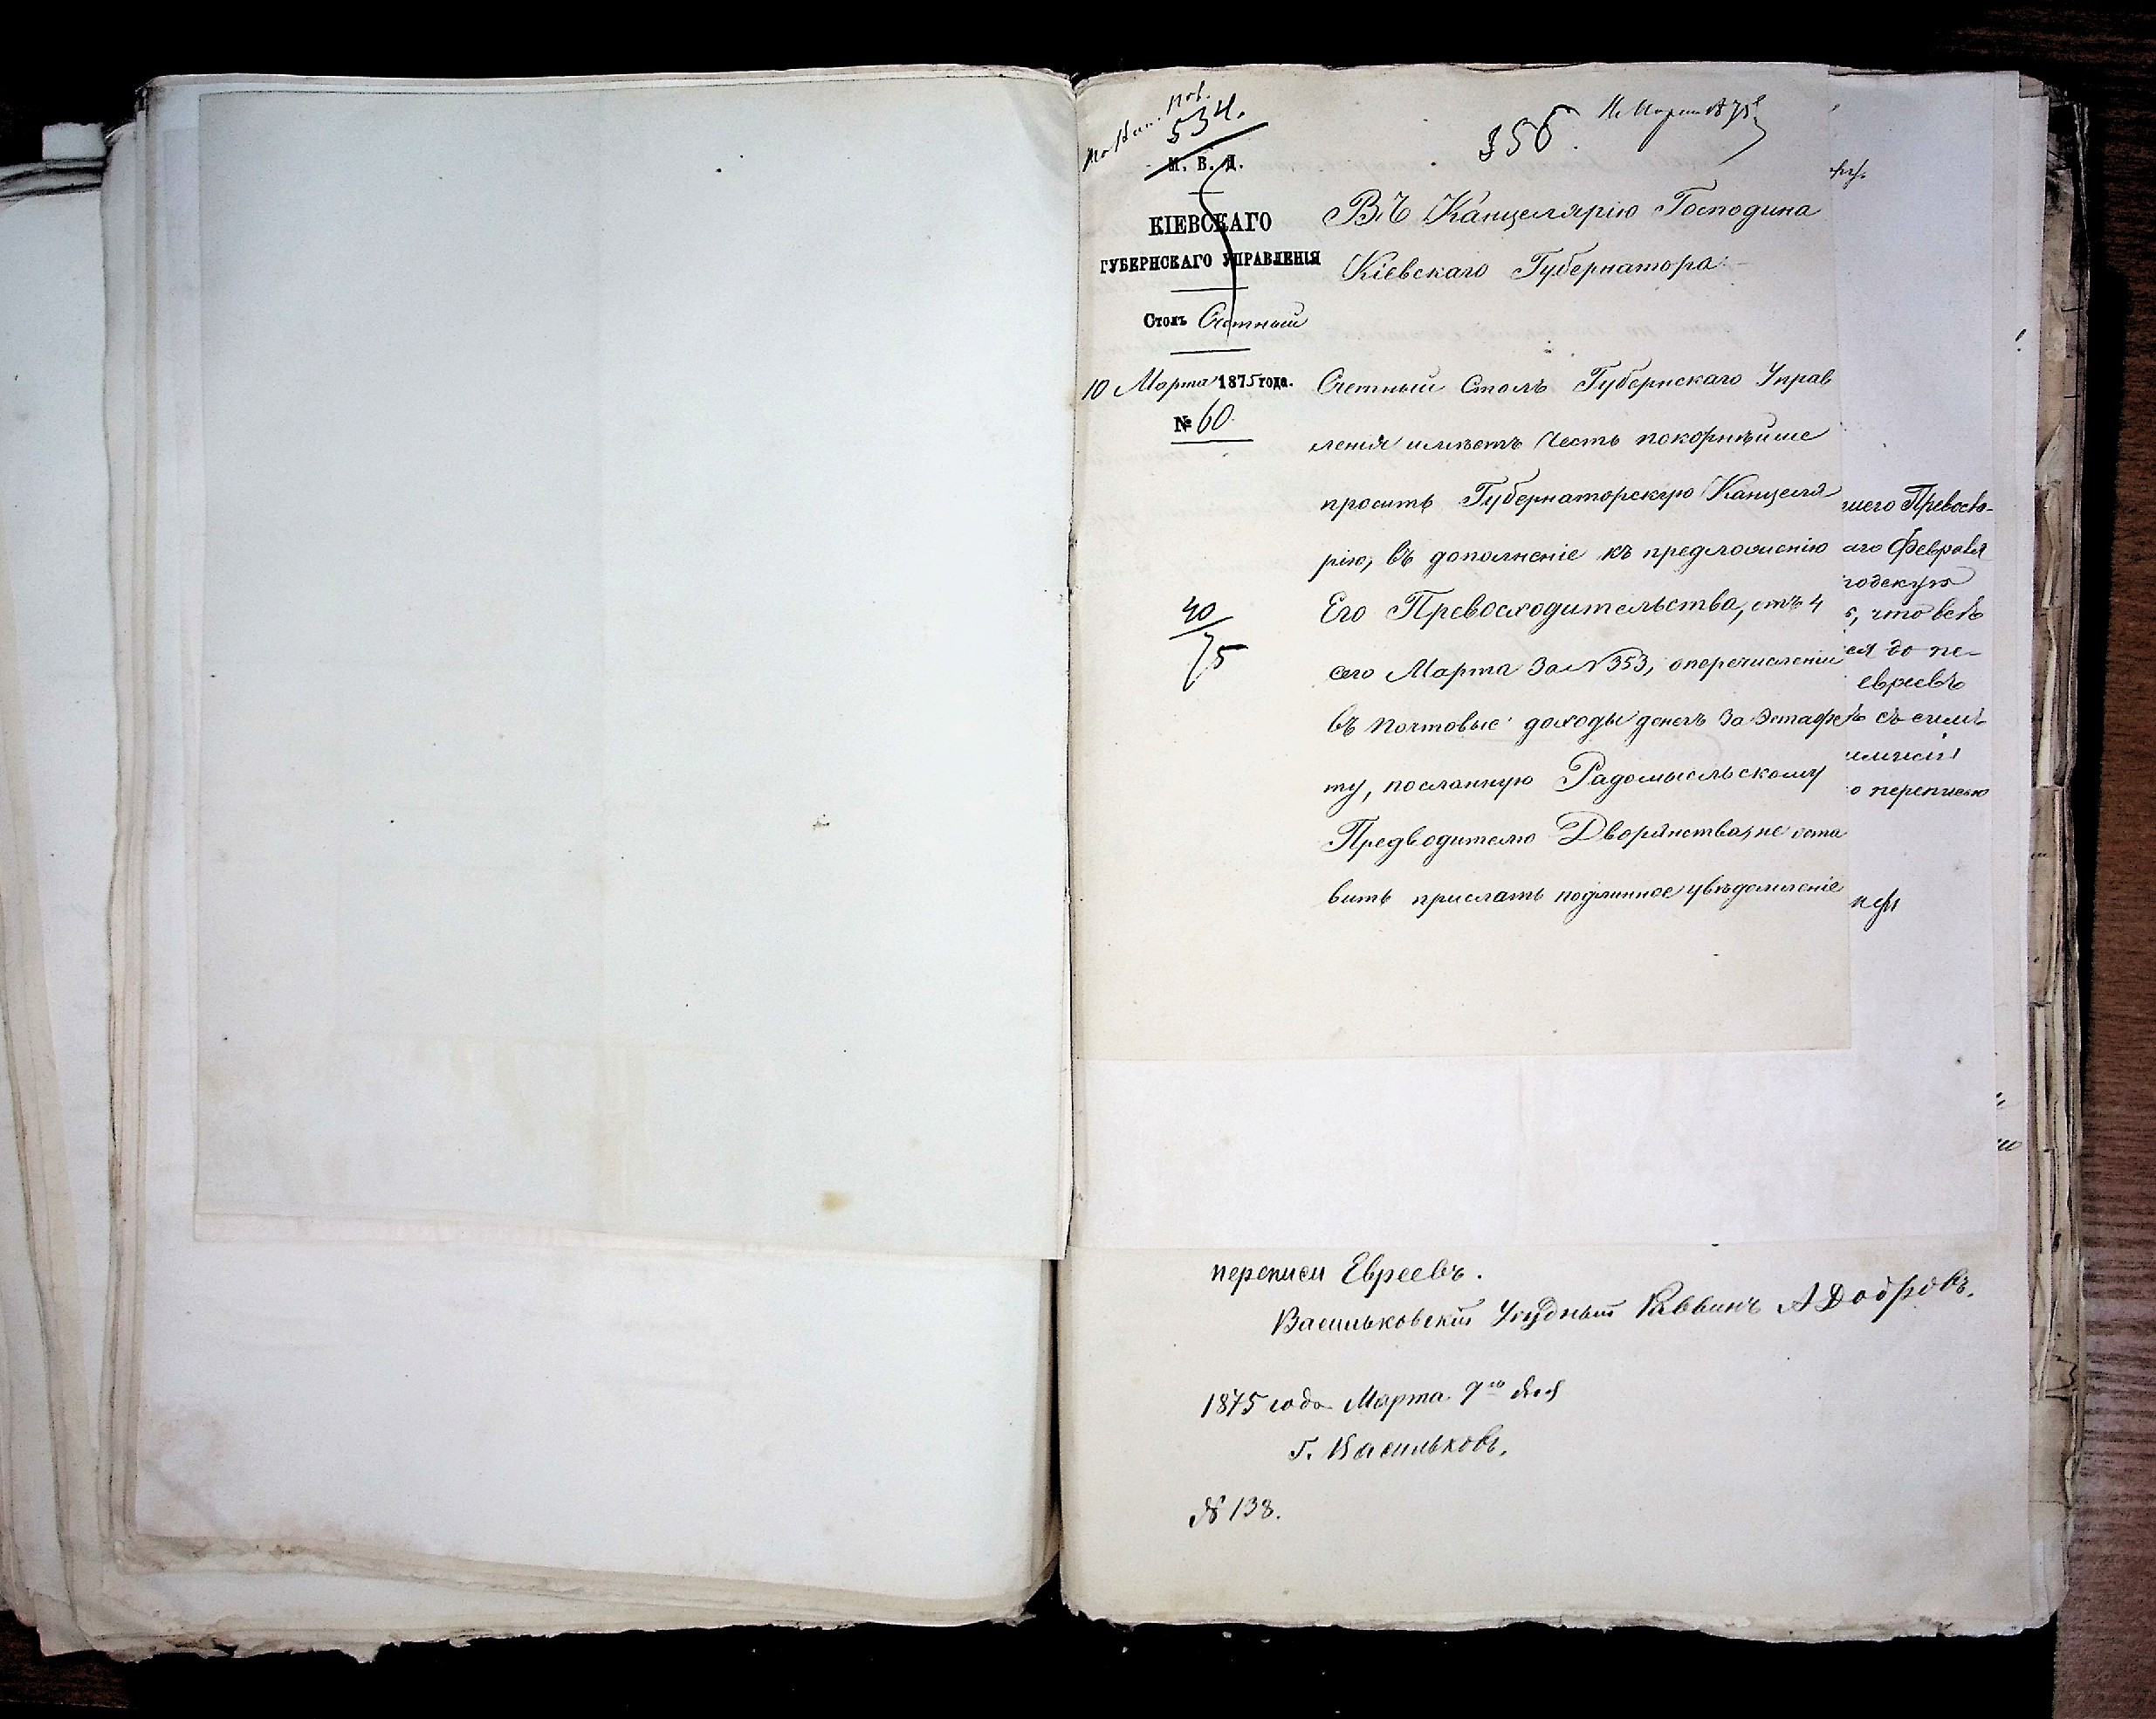 534.
356.
М. В. Д.
КІЕВСКАГО
ГУБЕРНСКАГО УПРАВЛЕНІЯ
Столъ Счетный
10 Марта 1875 года.
№ 60.
40
75
Въ Канцелярію Господина
Кіевскаго Губернатора
Счетный Столъ Губернскаго Управ
ленія имѣетъ честь покорнѣйше
просить Губернаторскую Канцеля
рію, въ дополненіе къ предложенію
Его Превосходительства, отъ 4
сего Марта за № 353, о перечисленіи
въ почтовые доходы денегъ за эстафе
ту, посланную Радомысльскому
Предводителю Дворянства, не оста
вить прислать подлинное увѣдомленіе
шего Превосхо-
аго Февраля
родскую
, что всѣ
ся до пе-
евреевъ
съ симъ
о переписью
переписи Евреевъ.
Васильковскій Уѣздный Раввинъ А Добровъ.
1875 года Марта 9го дня
г. Васильковъ.
№ 138.